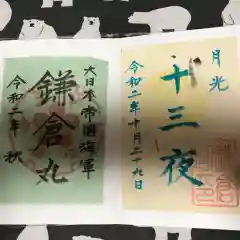 月光
十三夜
令和二年十月二十九日
大日本帝国海軍
鎌倉丸
令和二年 秋